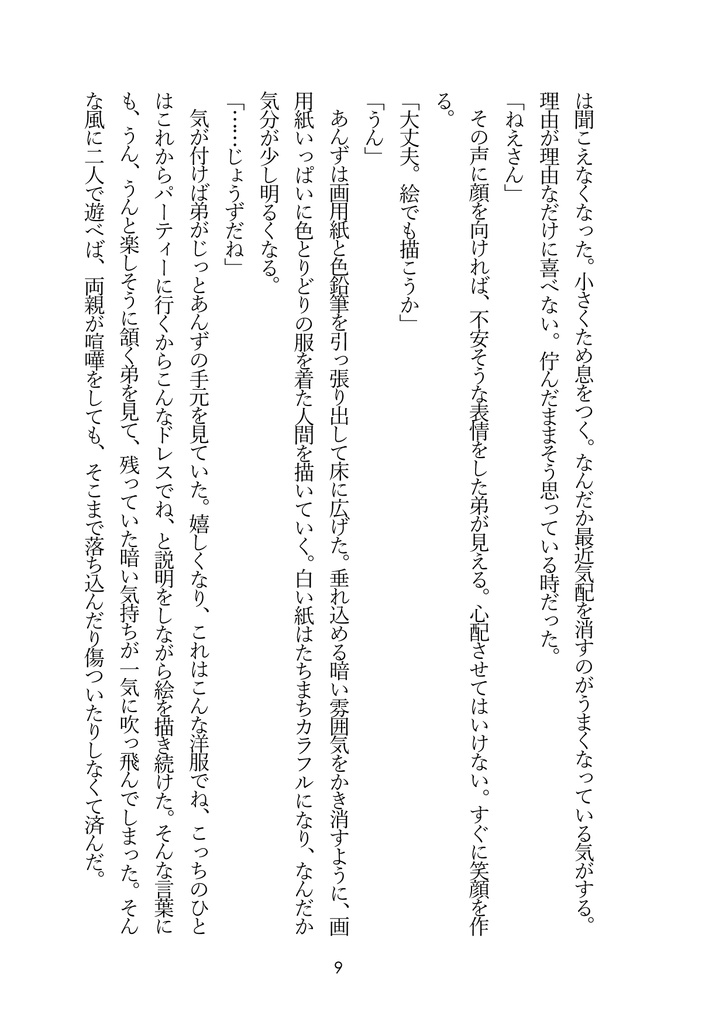 は聞こえなくなった。小さくため息をつく。なんだか最近気配を消すのがうまくなっている気がする。
理由が理由なだけに喜べない。佇んだままそう思っている時だった。
「ねえさん」
その声に顔を向ければ、不安そうな表情をした弟が見える。心配させてはいけない。すぐに笑顔を作
る。
「大丈夫。絵でも描こうか」
「うん」
あんずは画用紙と色鉛筆を引っ張り出して床に広げた。垂れ込める暗い雰囲気をかき消すように、画
用紙いっぱいに色とりどりの服を着た人間を描いていく。白い紙はたちまちカラフルになり、なんだか
気分が少し明るくなる。
「……じょうずだね」
気が付けば弟がじっとあんずの手元を見ていた。嬉しくなり、これはこんな洋服でね、こっちのひと
はこれからパーティーに行くからこんなドレスでね、と説明をしながら絵を描き続けた。そんな言葉に
も、うん、うんと楽しそうに頷く弟を見て、残っていた暗い気持ちが一気に吹っ飛んでしまった。そん
な風に二人で遊べば、両親が喧嘩をしても、そこまで落ち込んだり傷ついたりしなくて済んだ。
9